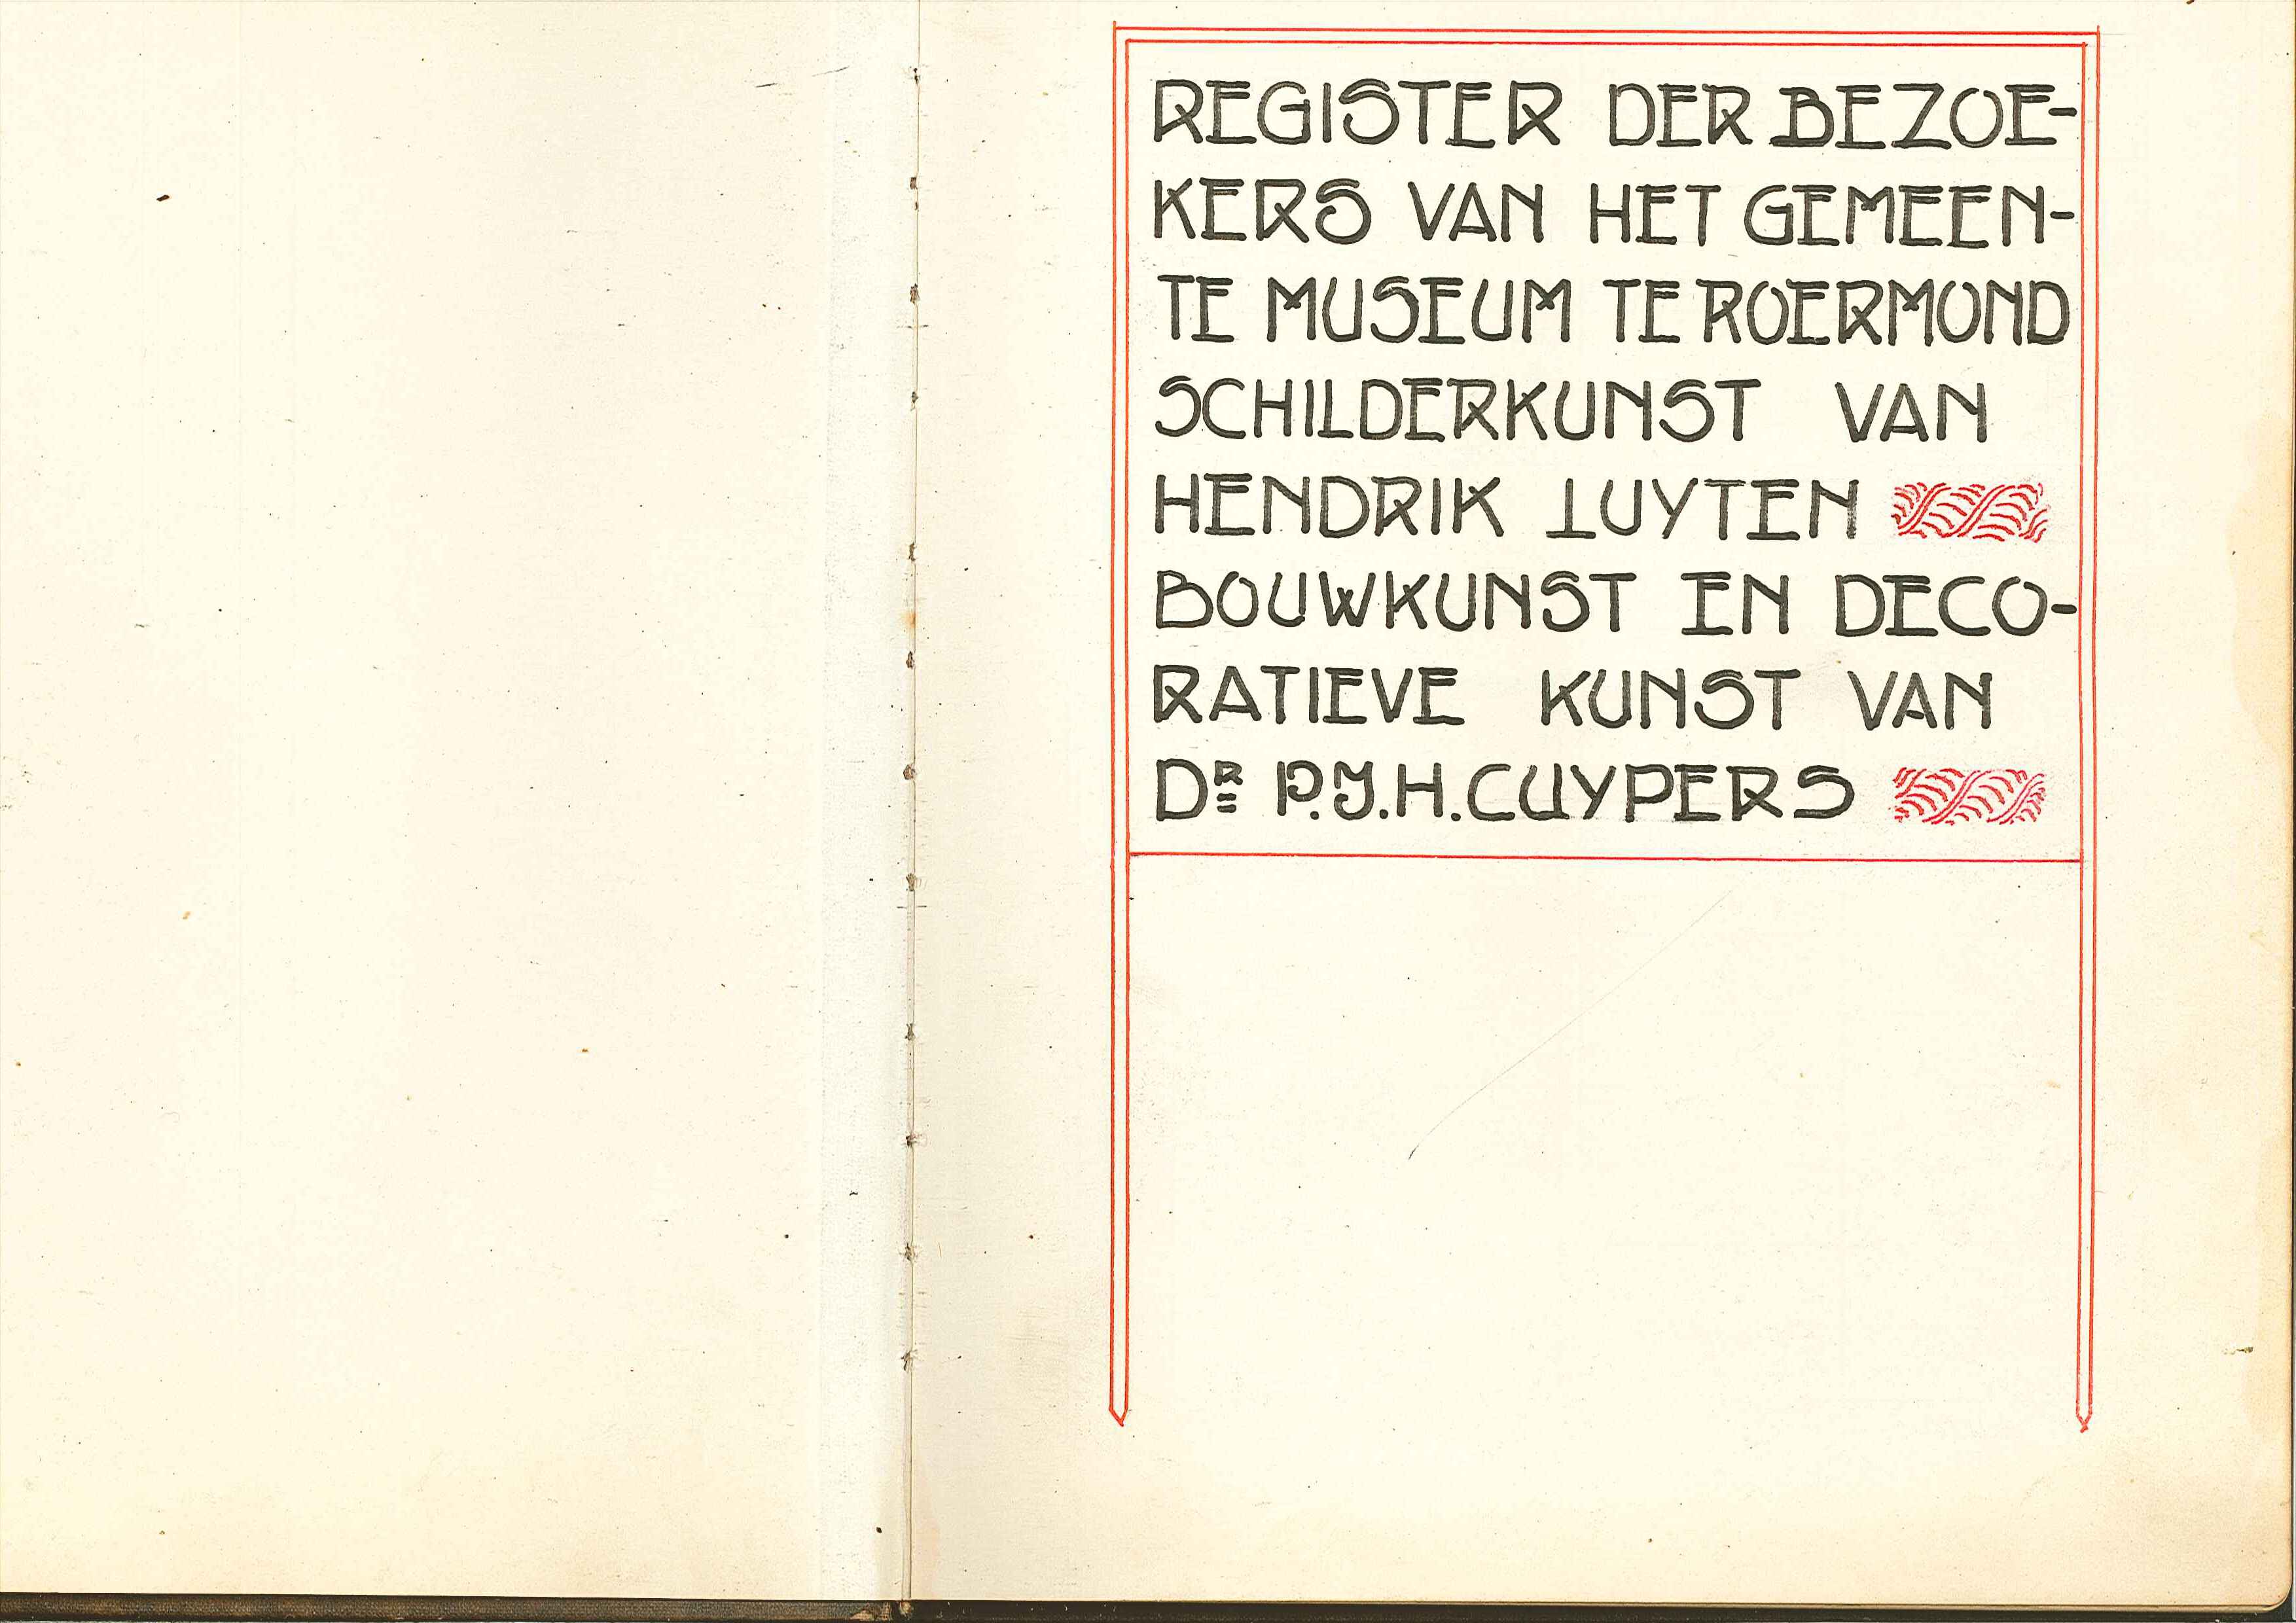 REGISTER DER BEZOE-
KERS VAN HET GEMEEN-
TE MUSEUM TE ROERMOND
SCHILDERKUNST VAN
HENDRIK LUYTEN
BOUWKUNST EN DECO-
RATIEVE KUNST VAN
DR P.J.H. CUYPERS